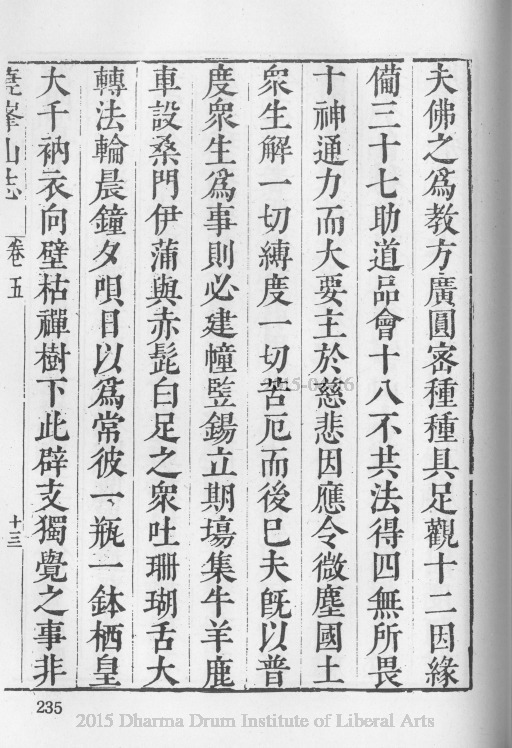 夫佛之爲教方廣圓宻種種具足觀十二因緣
備三十七助道品會十八不共法得四無所畏
十神通力而大要主於慈悲因應令微塵國土
衆生解一切縛度一切苦厄而後巳夫旣以普
度衆生爲事則必建幢竪錫立期塲集牛羊鹿
車設桑門伊蒲與赤髭白足之衆吐珊瑚舌大
轉法輪晨鐘夕唄日以爲常彼一瓶一鉢栖皇
大千衲衣向壁枯禪樹下此辟支獨覺之事非
堯峯山志 卷五 十三
235
2015 Dharma Drum Institute of Liberal Arts